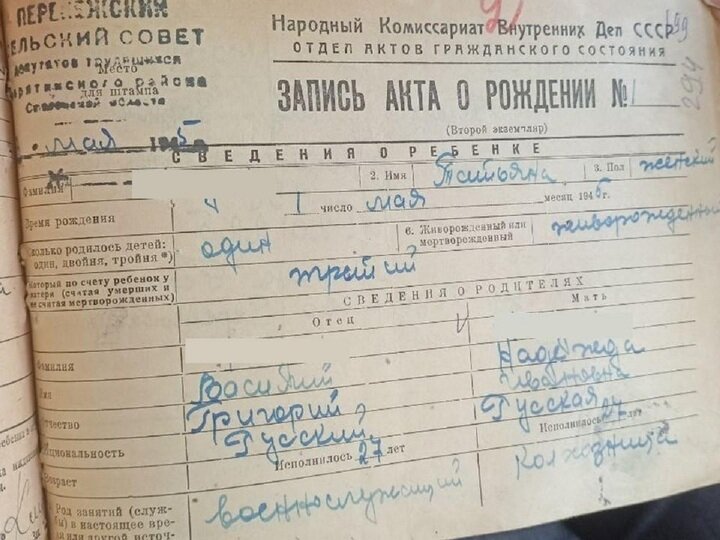 ПЕРЕНЕЖСКИЙ
ЕЛЬСКИЙ СОВЕТ
депутатов трудящихся
района
области
Место
для штампа
Народный Комиссариат Внутренних Дел СССР
ОТДЕЛ АКТОВ ГРАЖДАНСКОГО СОСТОЯНИЯ
159
294
ЗАПИСЬ АКТА О РОЖДЕНИИ № 1
(Второй экземпляр)
мая 1945
СВЕДЕНИЯ О РЕБЕНКЕ
Фамилия
2. Имя Татьяна 3. Пол женский
Время рождения
1 число мая месяц 1945 г.
Сколько родилось детей:
один, двойня, тройня *) один 6. Живорожденный или
мертворожденный живорожденный
Который по счету ребенок у
матери (считая умерших и
не считая мертворожденных) третий
СВЕДЕНИЯ О РОДИТЕЛЯХ
Отец Мать
Фамилия
Имя Василий Надежда
Отчество Григорий Ивановна
Национальность Русский Русская
Возраст Исполнилось 27 лет 27
Род занятий (служ-
бы) в настоящее вре-
мя или другой источ- военнослужащий Колхозница